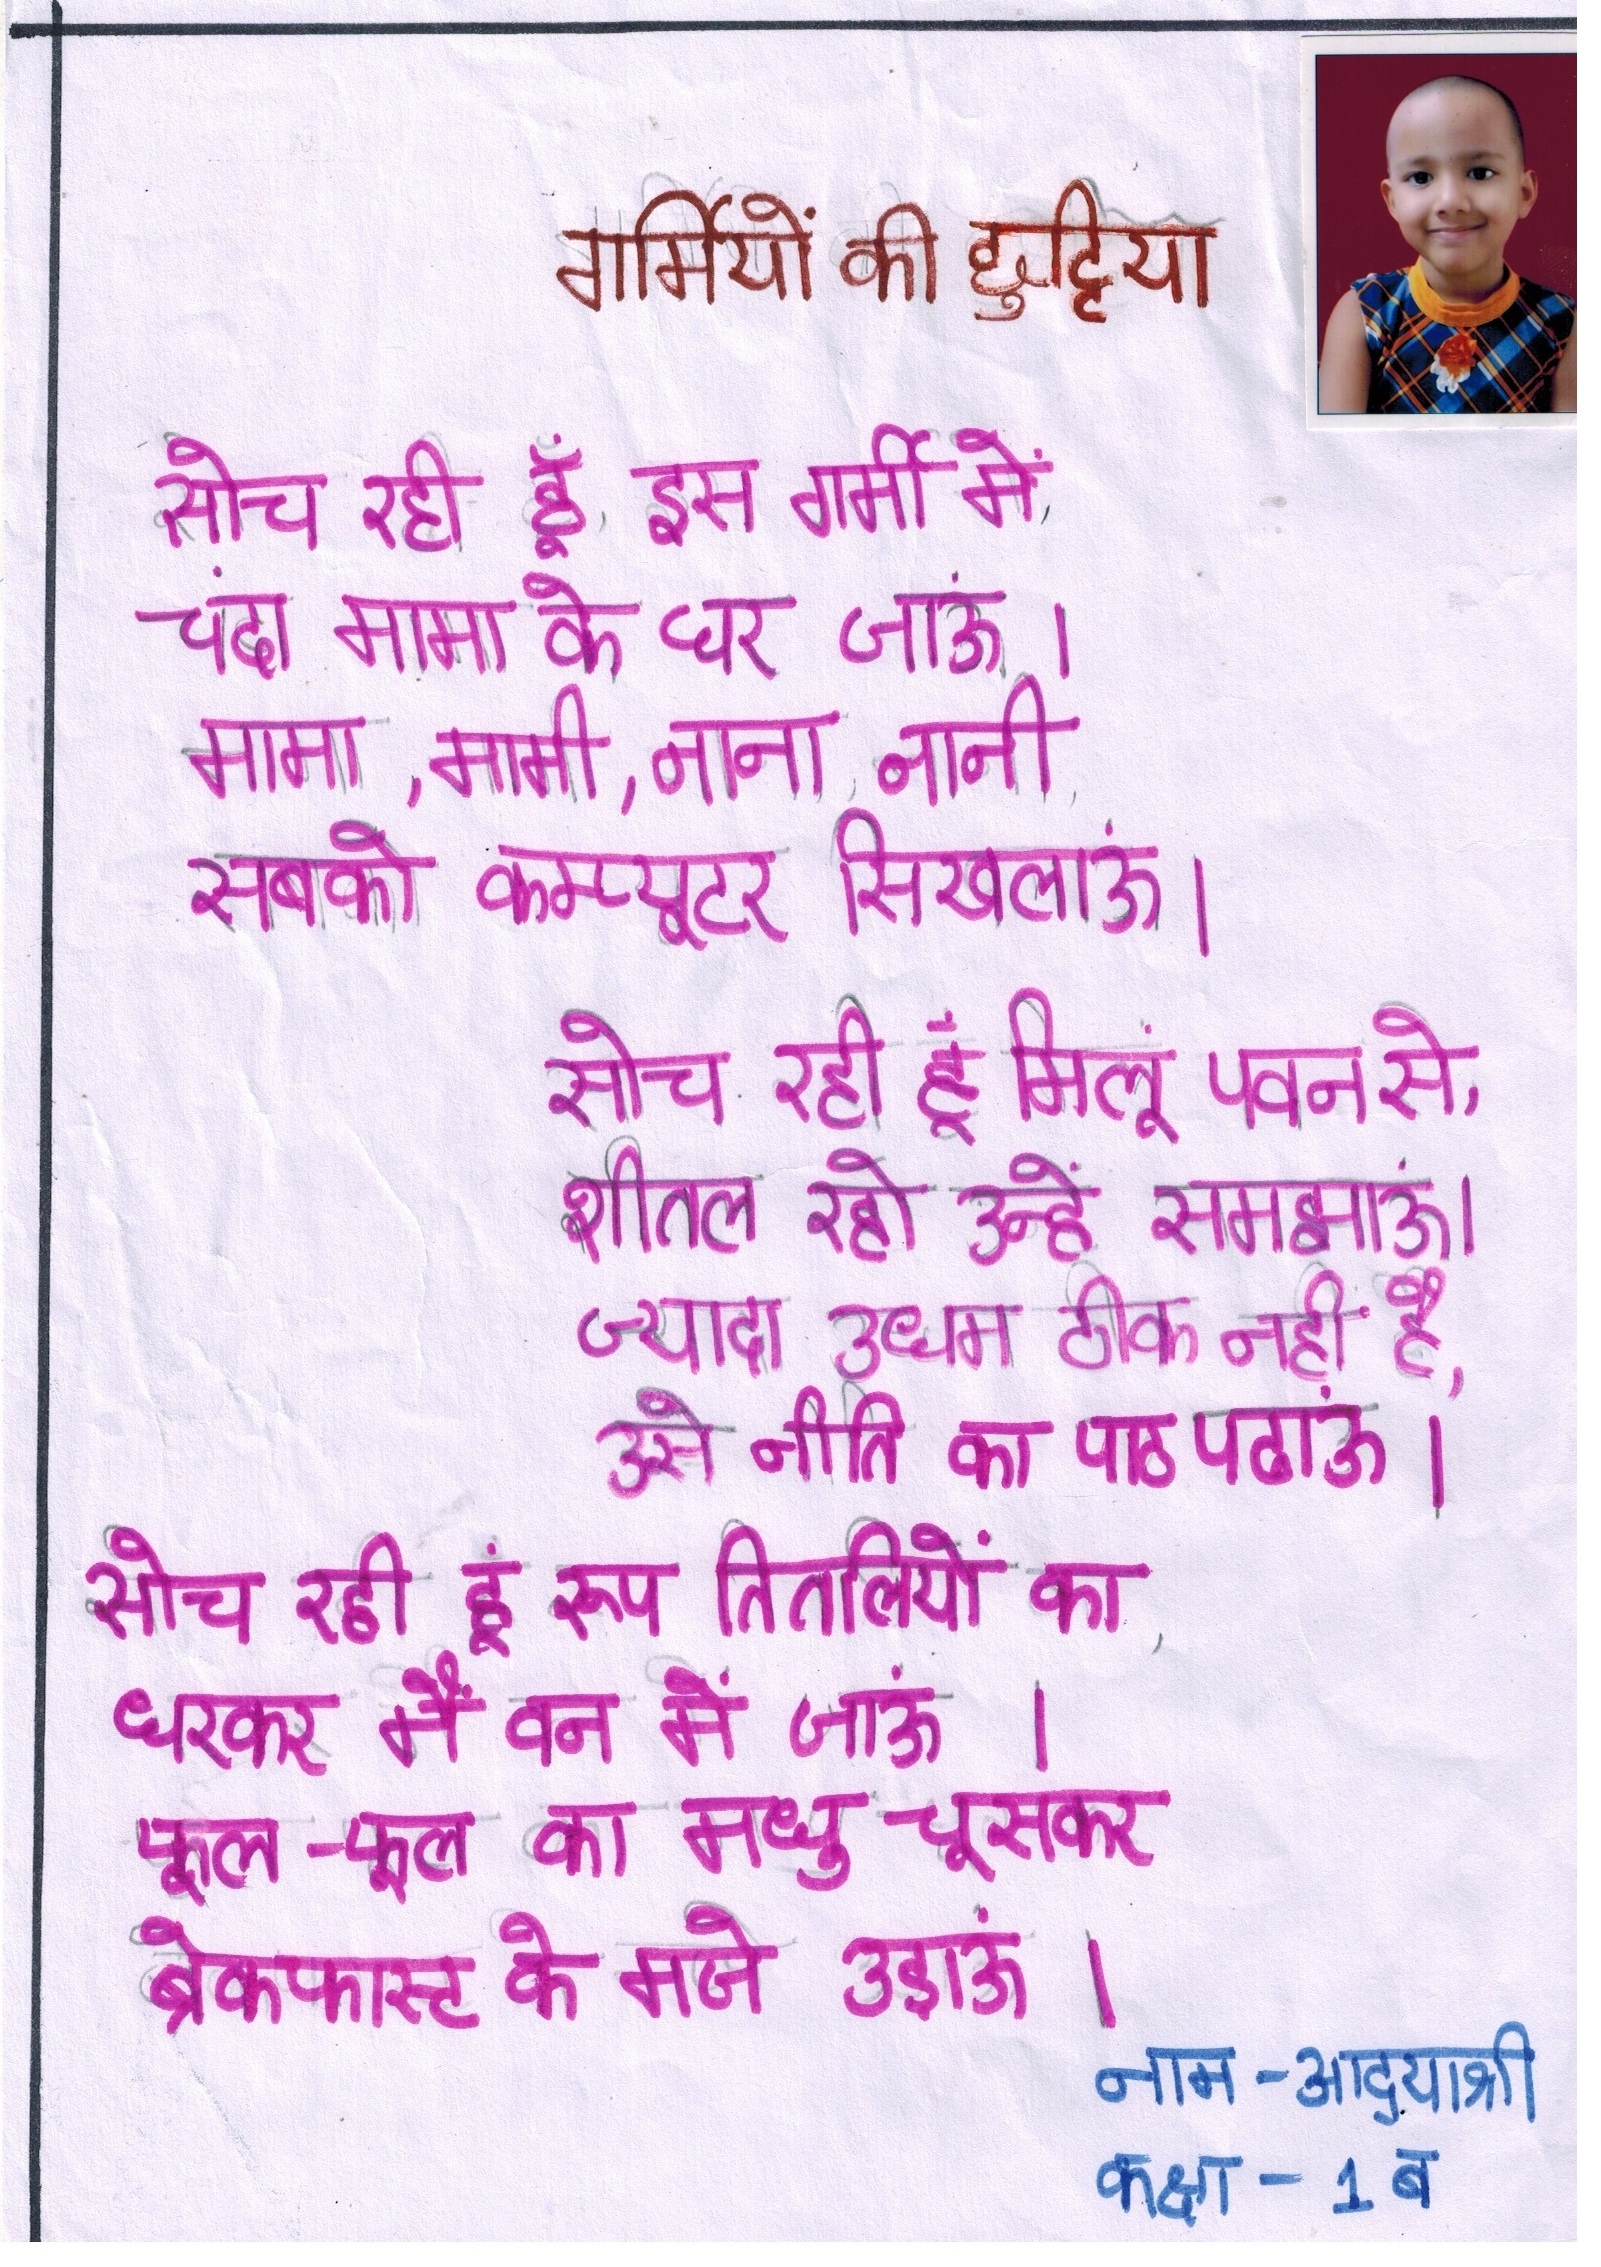 गर्मियों की छुट्टिया
सोच रही हूँ, इस गर्मी में,
चंदा मामा के घर जाऊं ।
मामा ,मामी ,नाना, नानी,
सबको कम्प्यूटर सिखलाऊं ।
सोच रही हूँ मिलूं पवन से,
शीतल रहो उन्हें समझाऊं।
ज्यादा उधम ठीक नहीं है,
उसे नीति का पाठ पढाऊं ।
सोच रही हूं रूप तितलियों का,
धरकर मैं वन में जाऊं ।
फूल -फूल का मधु चूसकर
ब्रेकफास्ट के मजे उडाऊं ।
नाम - आद्याश्री
कक्षा - 1 ब